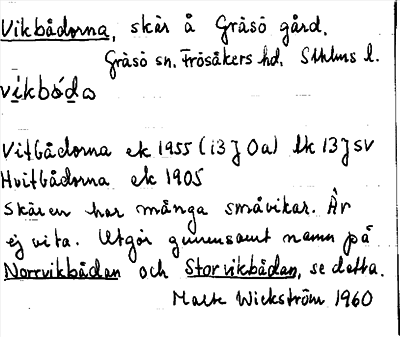 Vikbådorna, skär å Gräsö gård.
Gräsö sn. Frösåkers hd. Sthlms l.
vikbóda
Vitbådorna ek 1955 (13J 0a) lk 13J SV
Hvitbådorna ek 1905
Skären har många småvikar. Är
ej vita. Utgör gemensamt namn på
Norrvikbådan och Storvikbådan, se detta.
Malte Wickström 1960